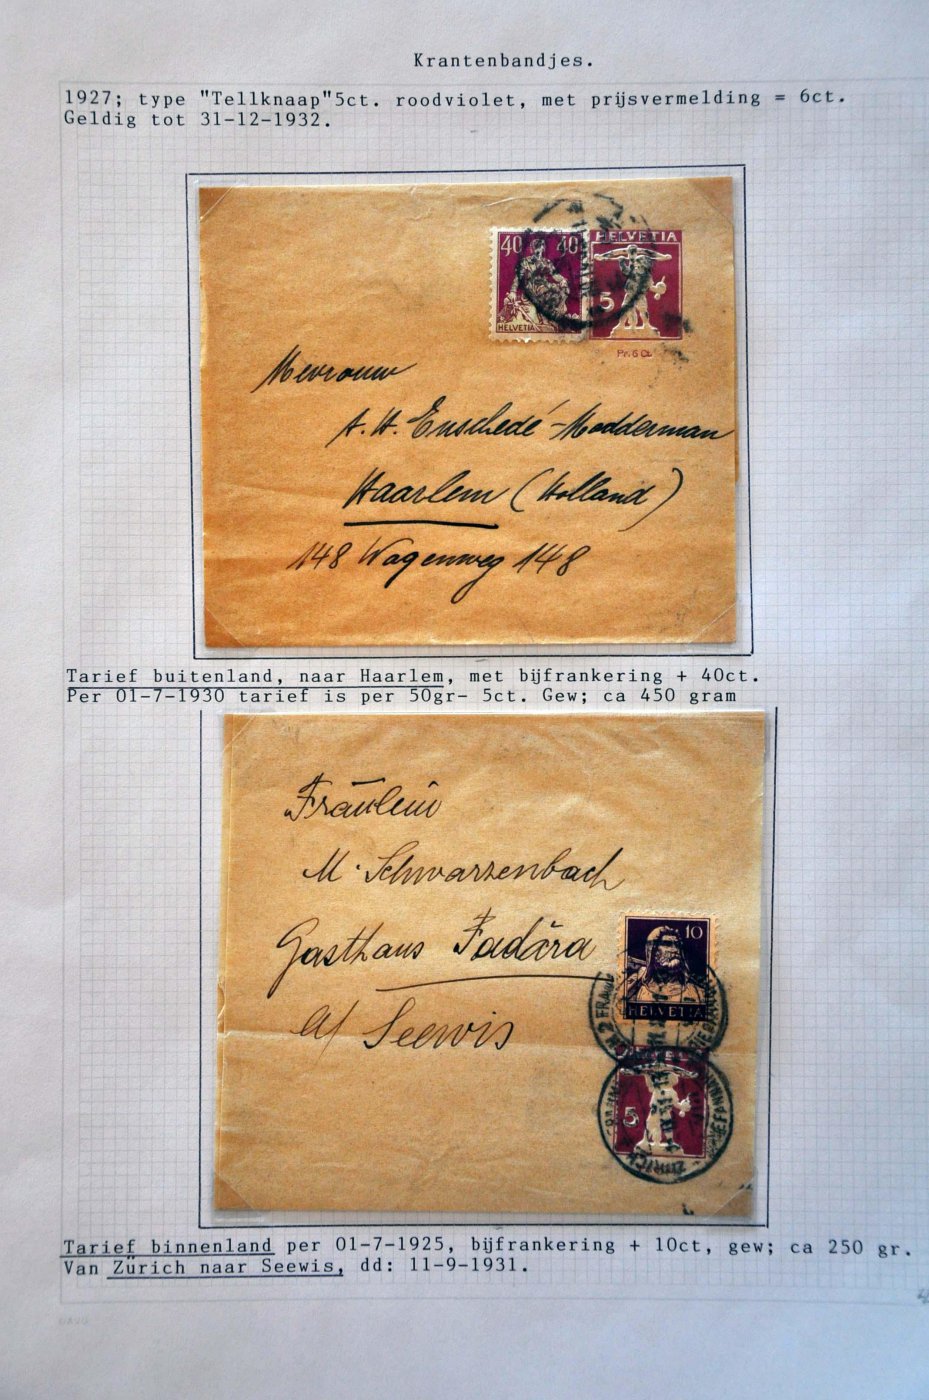 Krantenbandjes.
1927; type "Tellknaap"5ct. roodviolet, met prijsvermelding = 6ct.
Geldig tot 31-12-1932.
40 40
HELVETIA
HELVETIA
5
Pr. 6 Ct.
Mevrouw
A. H. Enschedé-Modderman
Haarlem (Holland)
148 Wagenweg 148
Tarief buitenland, naar Haarlem, met bijfrankering + 40ct.
Per 01-7-1930 tarief is per 50gr- 5ct. Gew; ca 450 gram
Fräulein
M. Schwarzenbach
Gasthaus Fadära
a/ Seewis
10
HELVETIA
5
ZÜRICH
Tarief binnenland per 01-7-1925, bijfrankering + 10ct, gew; ca 250 gr.
Van Zürich naar Seewis, dd: 11-9-1931.